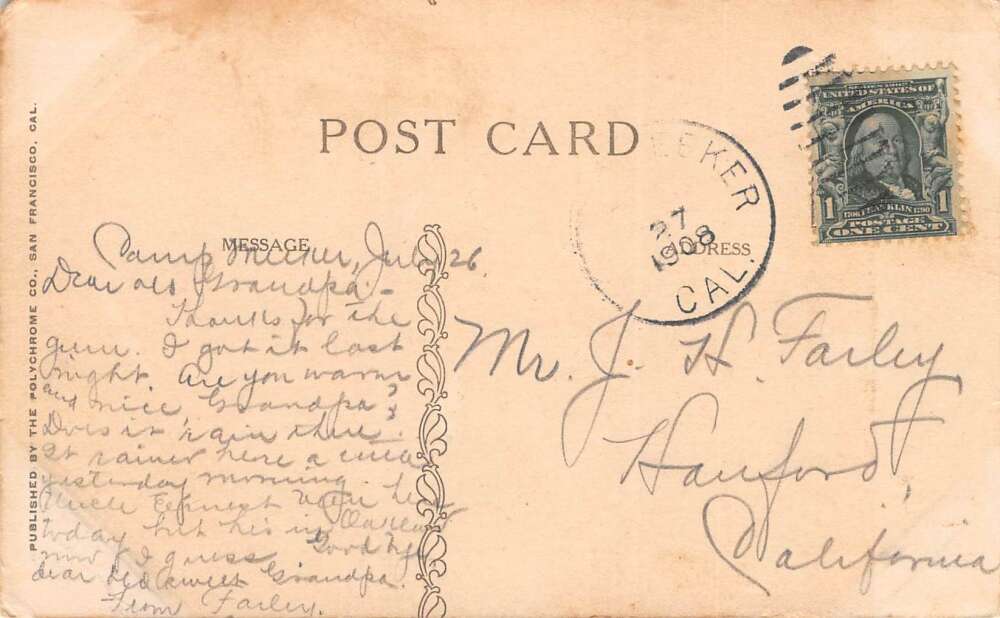 POST CARD
PUBLISHED BY THE POLYCHROME CO., SAN FRANCISCO, CAL.
MESSAGE
ADDRESS
Camp Meeker, July 26
Dear old Grandpa:-
Thanks for the
gum. I got it last
night. Are you warm
and nice, Grandpa?
Does it rain there?
It rained here a
yesterday morning.
Uncle Ernest were here
today but his in Oakland
now I guess. Good by
dear old sweet Grandpa.
From Farley.
Mr. J. H. Farley
Hanford,
California
EEKER
27
1908
CAL.
SERIES 1902
UNITED STATES OF
AMERICA
1706 FRANKLIN 1790
1 POSTAGE 1
ONE CENT